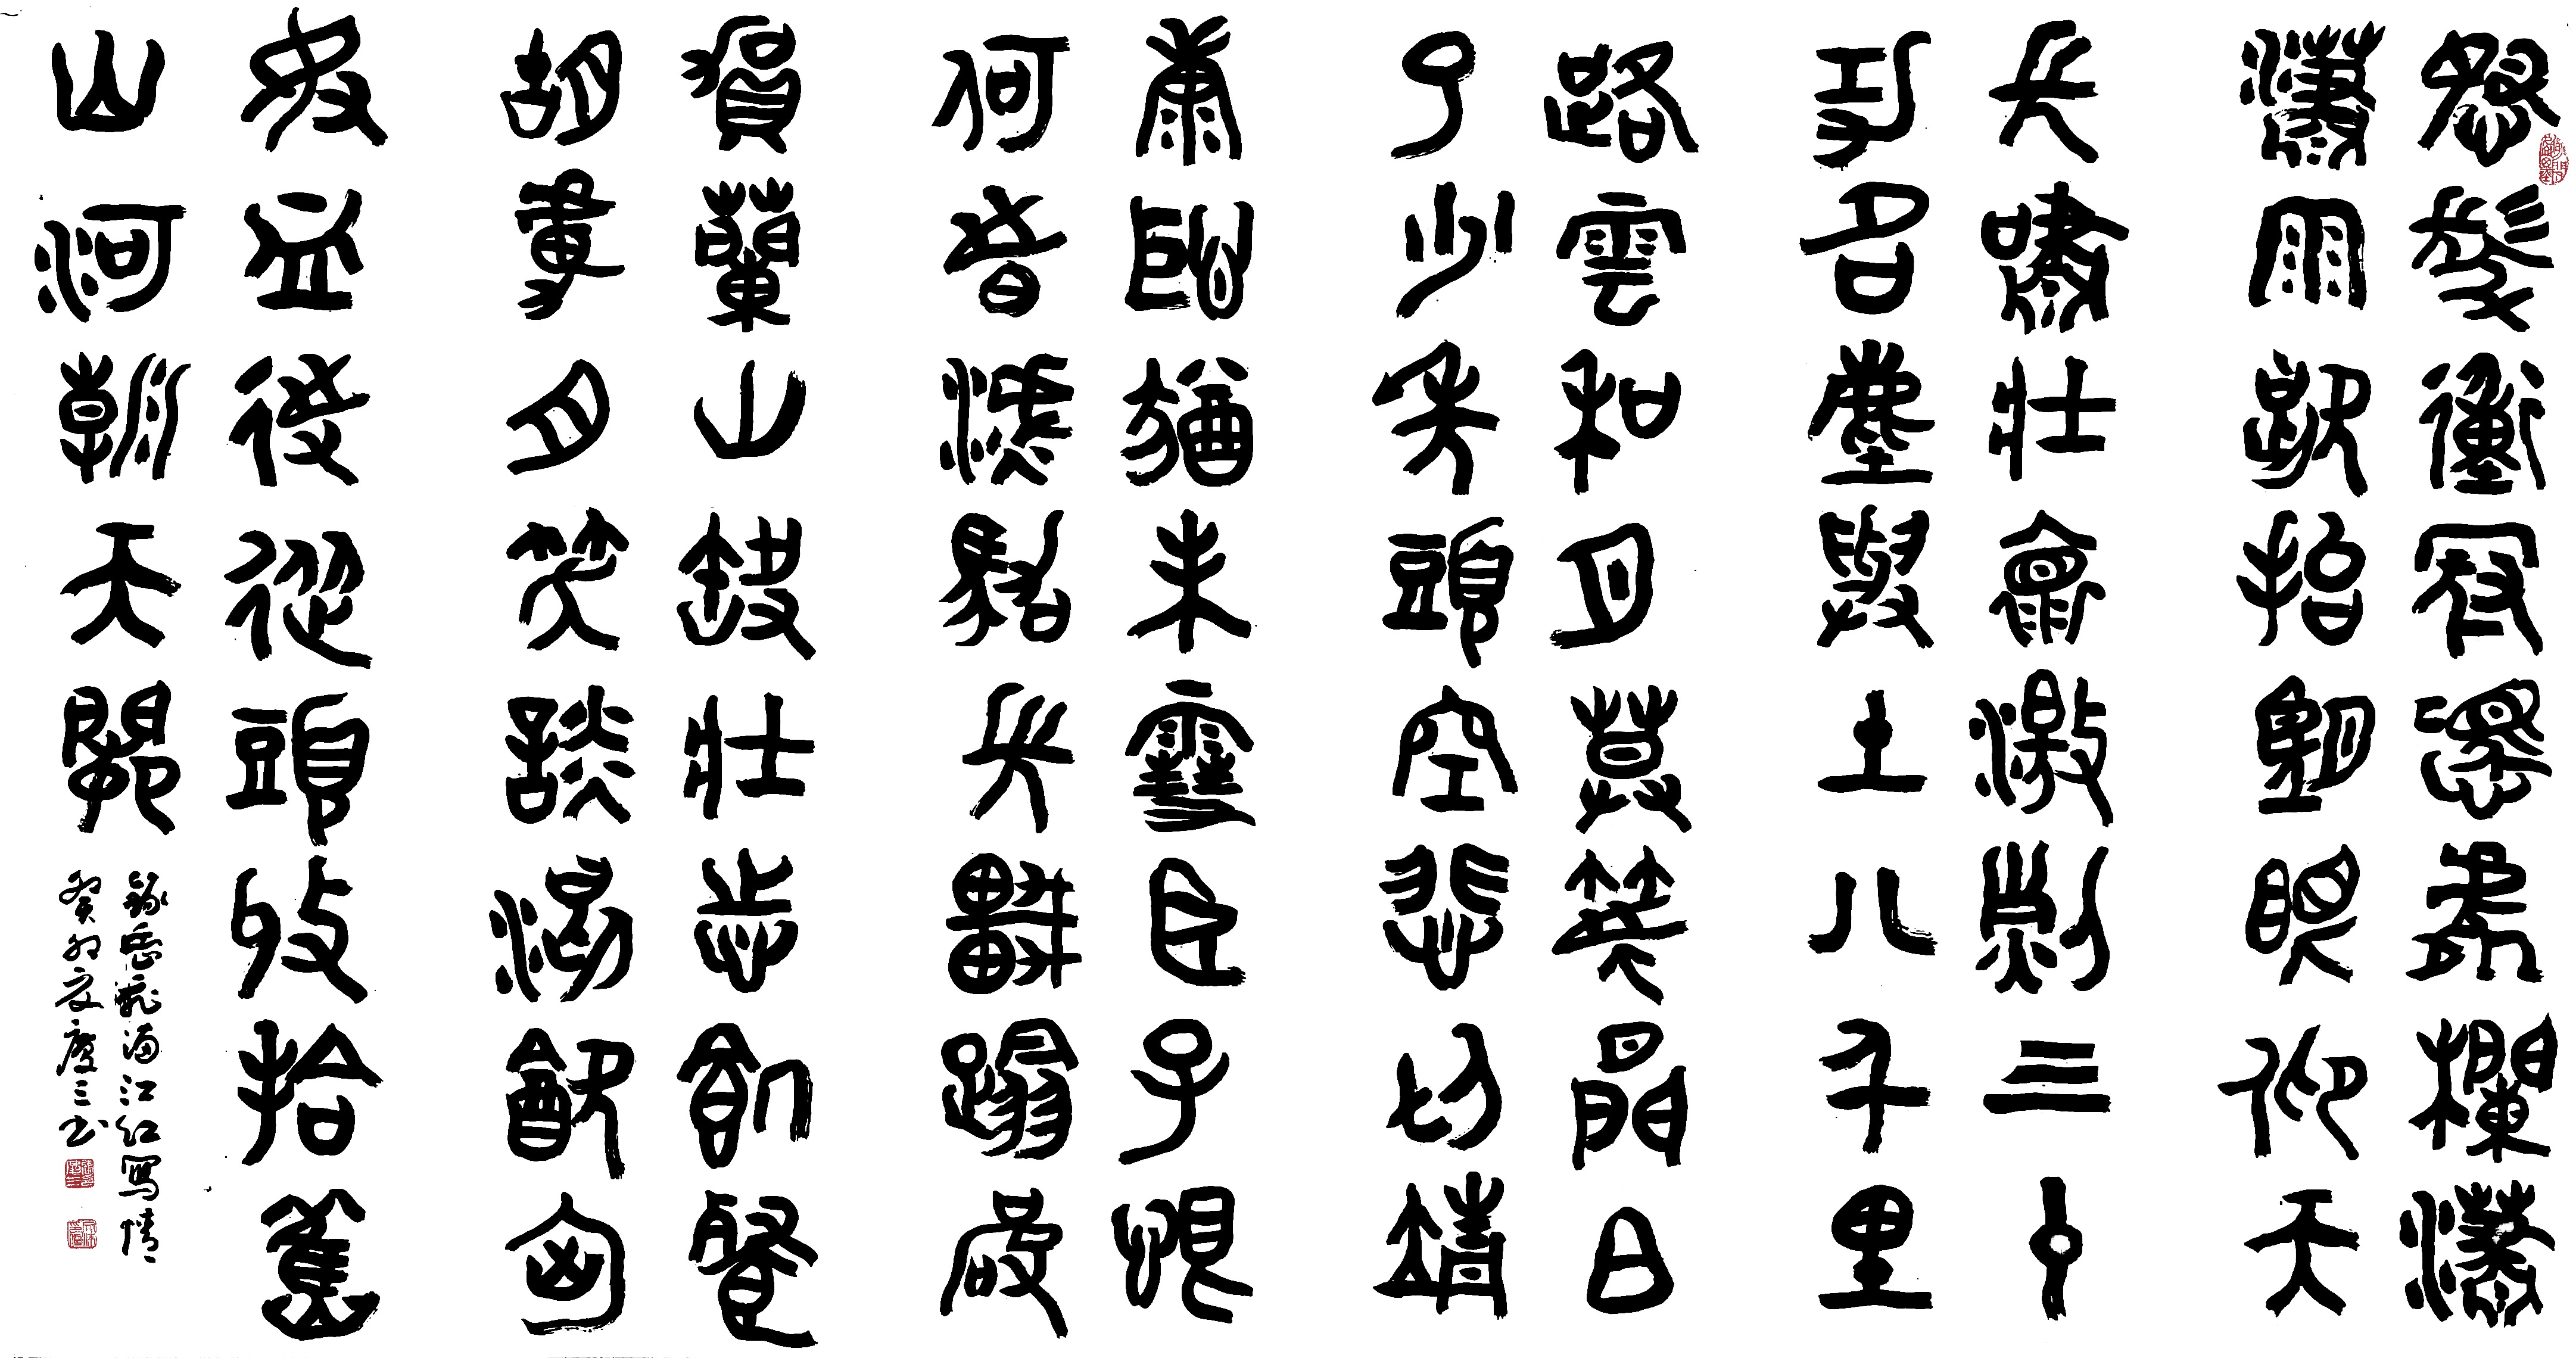 怒髮衝冠憑處欄瀟
瀟雨歇抬望眼仰天
長嘯壯懷激烈三十
功名塵與土八千里
路雲和月莫等閒白
了少年頭空悲切靖
康恥猶未雪臣子恨
何時滅駕長車踏破
賀蘭山缺壯志飢餐
胡虜肉笑談渴飲匈
奴血待從頭收拾舊
山河朝天闕
錄岳飛滿江紅寫情
癸卯夏慶三書